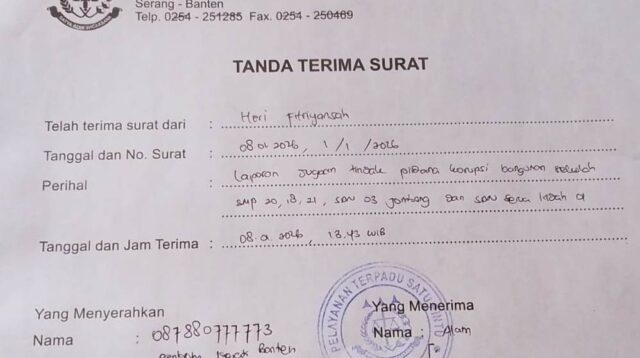 Serang - Banten
Telp. 0254 - 251285 Fax. 0254 - 250469
TANDA TERIMA SURAT
Telah terima surat dari : Heri Fitriyansah
Tanggal dan No. Surat : 08.01.2026, 1/1/2026
Perihal : Laporan dugaan tindak pidana korupsi bangunan sekolah
SMP 20, 18, 21, SDN 03 Jombang dan SDN Serua Indah 01
Tanggal dan Jam Terima : 08.01.2026, 13.43 WIB
Yang Menyerahkan
Nama : 087880777773
Banten
PELAYANAN TERPADU SATU PINTU
Yang Menerima
Nama : Alam